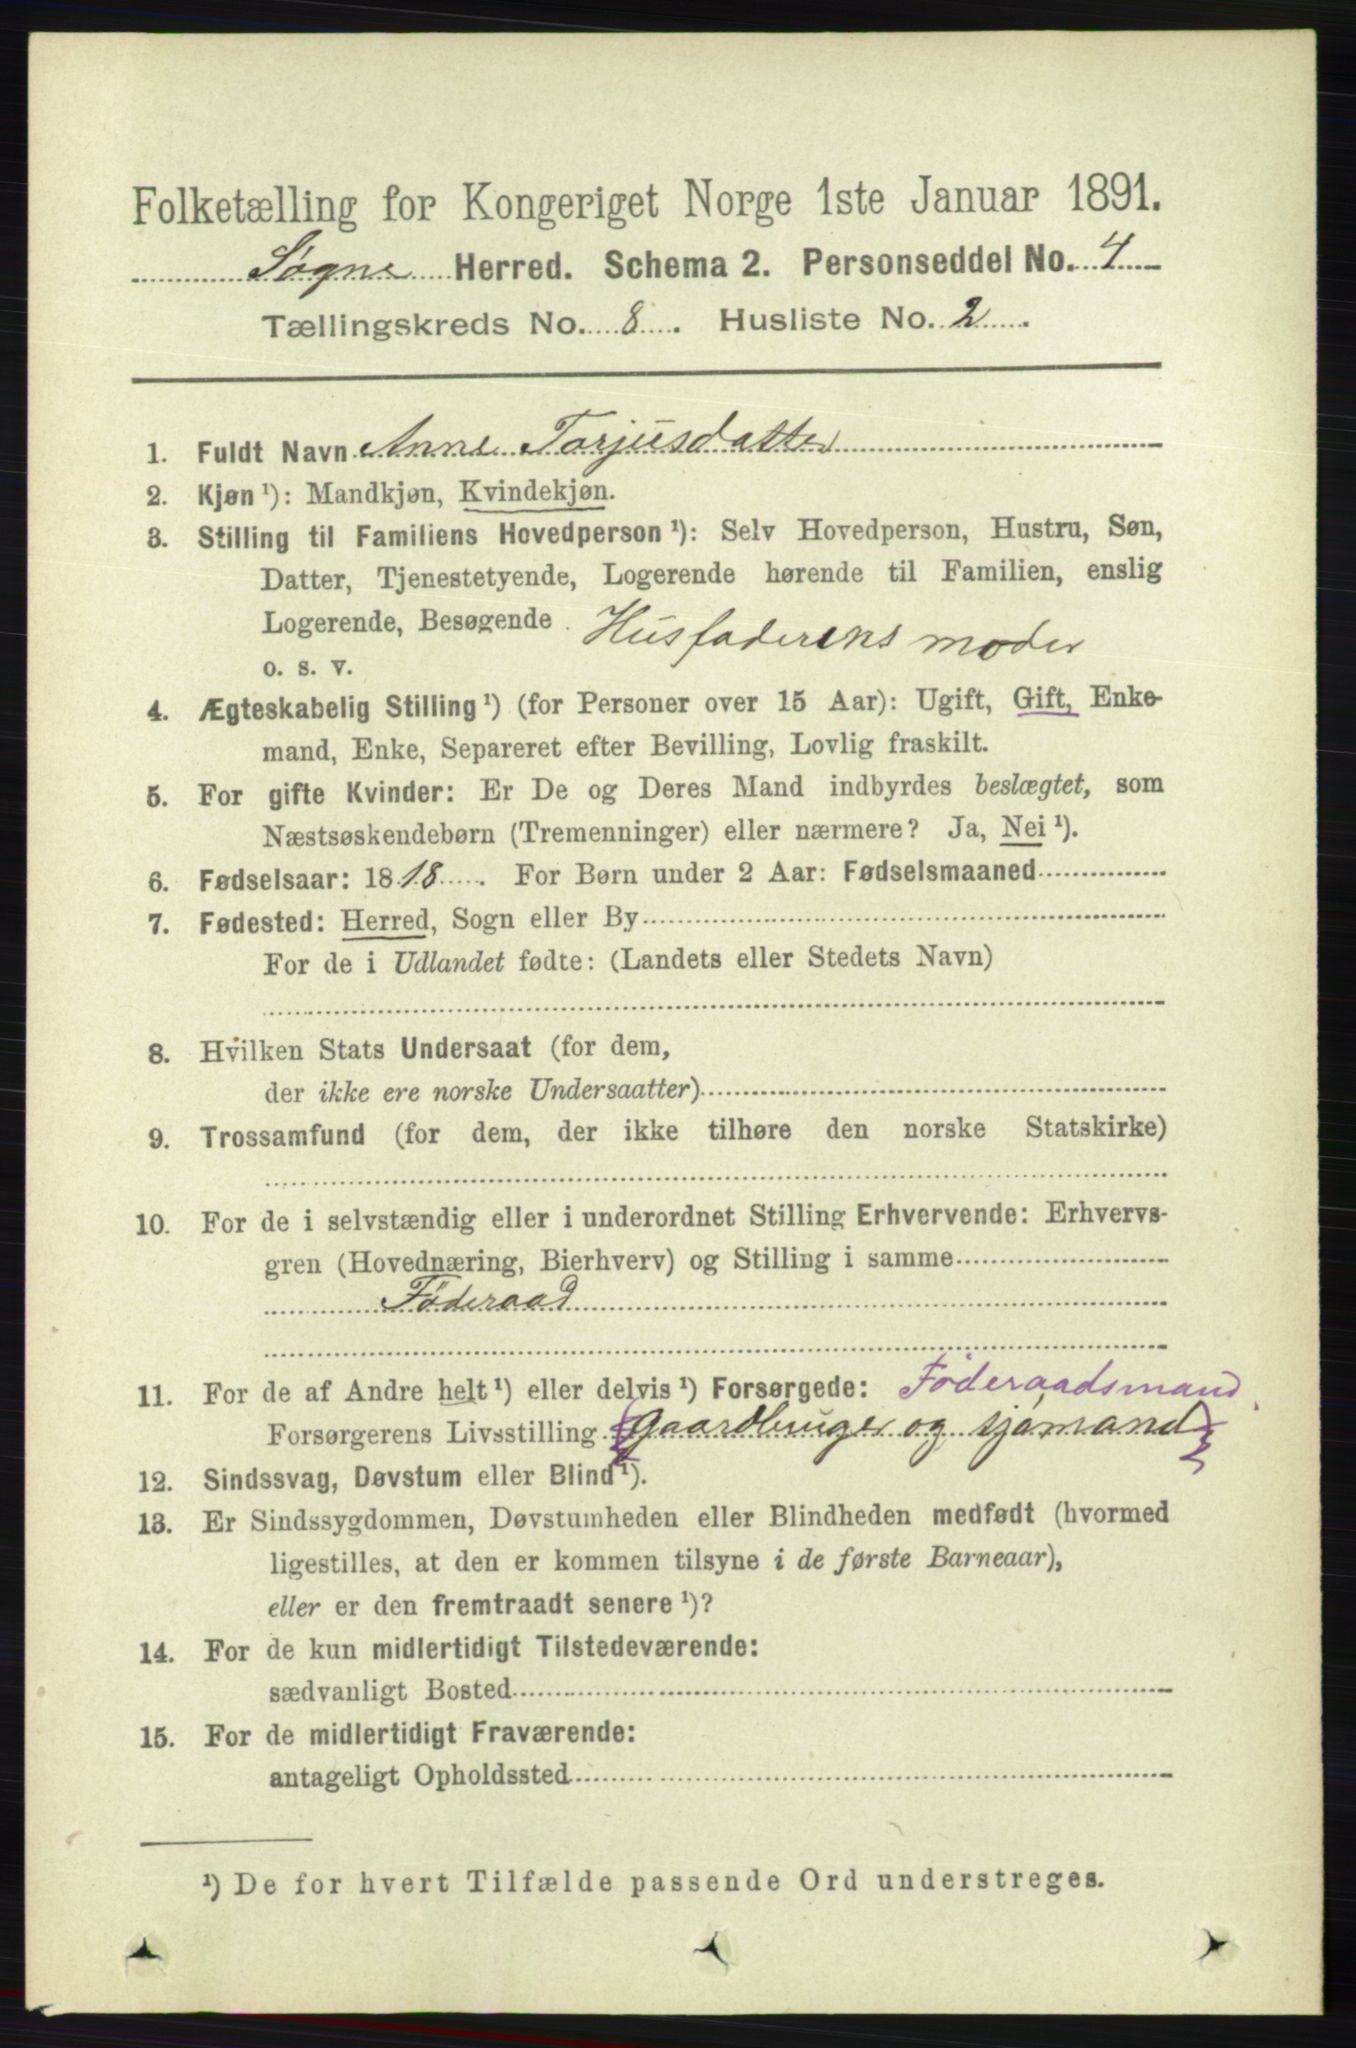 Folketælling for Kongeriget Norge 1ste Januar 1891.
Søgne Herred. Schema 2. Personseddel No. 4
Tællingskreds No. 8. Husliste No. 2.
1. Fuldt Navn Anne Torjusdatter
2. Kjøn ¹): Mandkjøn, Kvindekjøn.
3. Stilling til Familiens Hovedperson ¹): Selv Hovedperson, Hustru, Søn,
Datter, Tjenestetyende, Logerende hørende til Familien, enslig
Logerende, Besøgende Husfaderens moder
o. s. v.
4. Ægteskabelig Stilling ¹) (for Personer over 15 Aar): Ugift, Gift, Enke-
mand, Enke, Separeret efter Bevilling, Lovlig fraskilt.
5. For gifte Kvinder: Er De og Deres Mand indbyrdes beslægtet, som
Næstsøskendebørn (Tremenninger) eller nærmere? Ja, Nei ¹).
6. Fødselsaar: 1818. For Børn under 2 Aar: Fødselsmaaned
7. Fødested: Herred, Sogn eller By
For de i Udlandet fødte: (Landets eller Stedets Navn)
8. Hvilken Stats Undersaat (for dem,
der ikke ere norske Undersaatter)
9. Trossamfund (for dem, der ikke tilhøre den norske Statskirke)
10. For de i selvstændig eller i underordnet Stilling Erhvervende: Erhvervs-
gren (Hovednæring, Bierhverv) og Stilling i samme
Föderaad
11. For de af Andre helt ¹) eller delvis ¹) Forsørgede: Föderaadsmand.
Forsørgerens Livsstilling (gaardbruger og sjömand)
12. Sindssvag, Døvstum eller Blind ¹).
13. Er Sindssygdommen, Døvstumheden eller Blindheden medfødt (hvormed
ligestilles, at den er kommen tilsyne i de første Barneaar),
eller er den fremtraadt senere ¹)?
14. For de kun midlertidigt Tilstedeværende:
sædvanligt Bosted
15. For de midlertidigt Fraværende:
antageligt Opholdssted
¹) De for hvert Tilfælde passende Ord understreges.